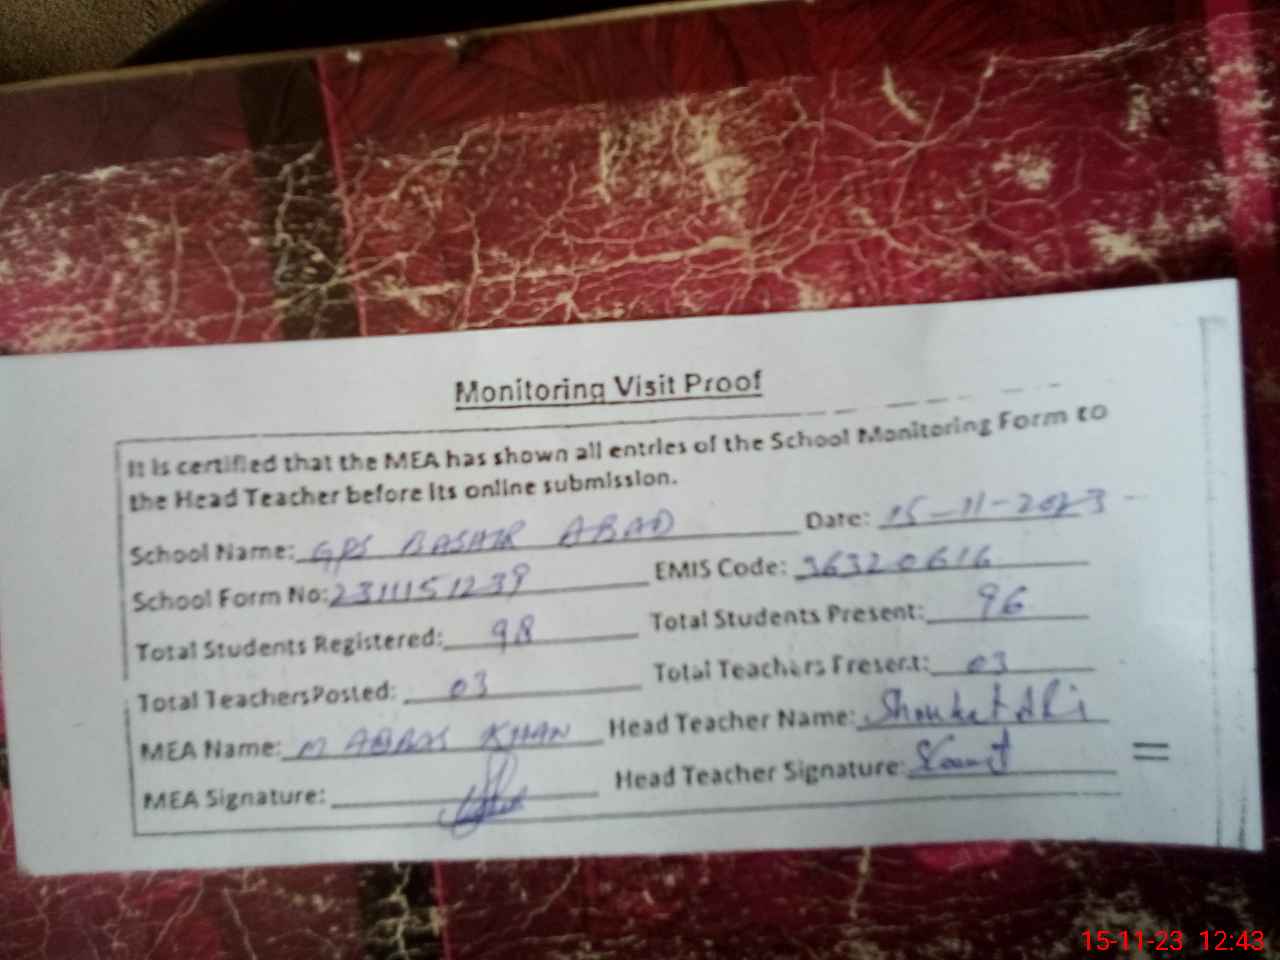 Monitoring Visit Proof
It is certified that the MEA has shown all entries of the School Monitoring Form to
the Head Teacher before its online submission.
School Name: GPS BASHIR ABAD Date: 15-11-2023
School Form No: 2311151239 EMIS Code: 36320616
Total Students Registered: 98 Total Students Present: 96
Total Teachers Posted: 03 Total Teachers Present: 03
MEA Name: M ABBAS KHAN Head Teacher Name: Shouket Ali
MEA Signature: Head Teacher Signature:
15-11-23 12:43